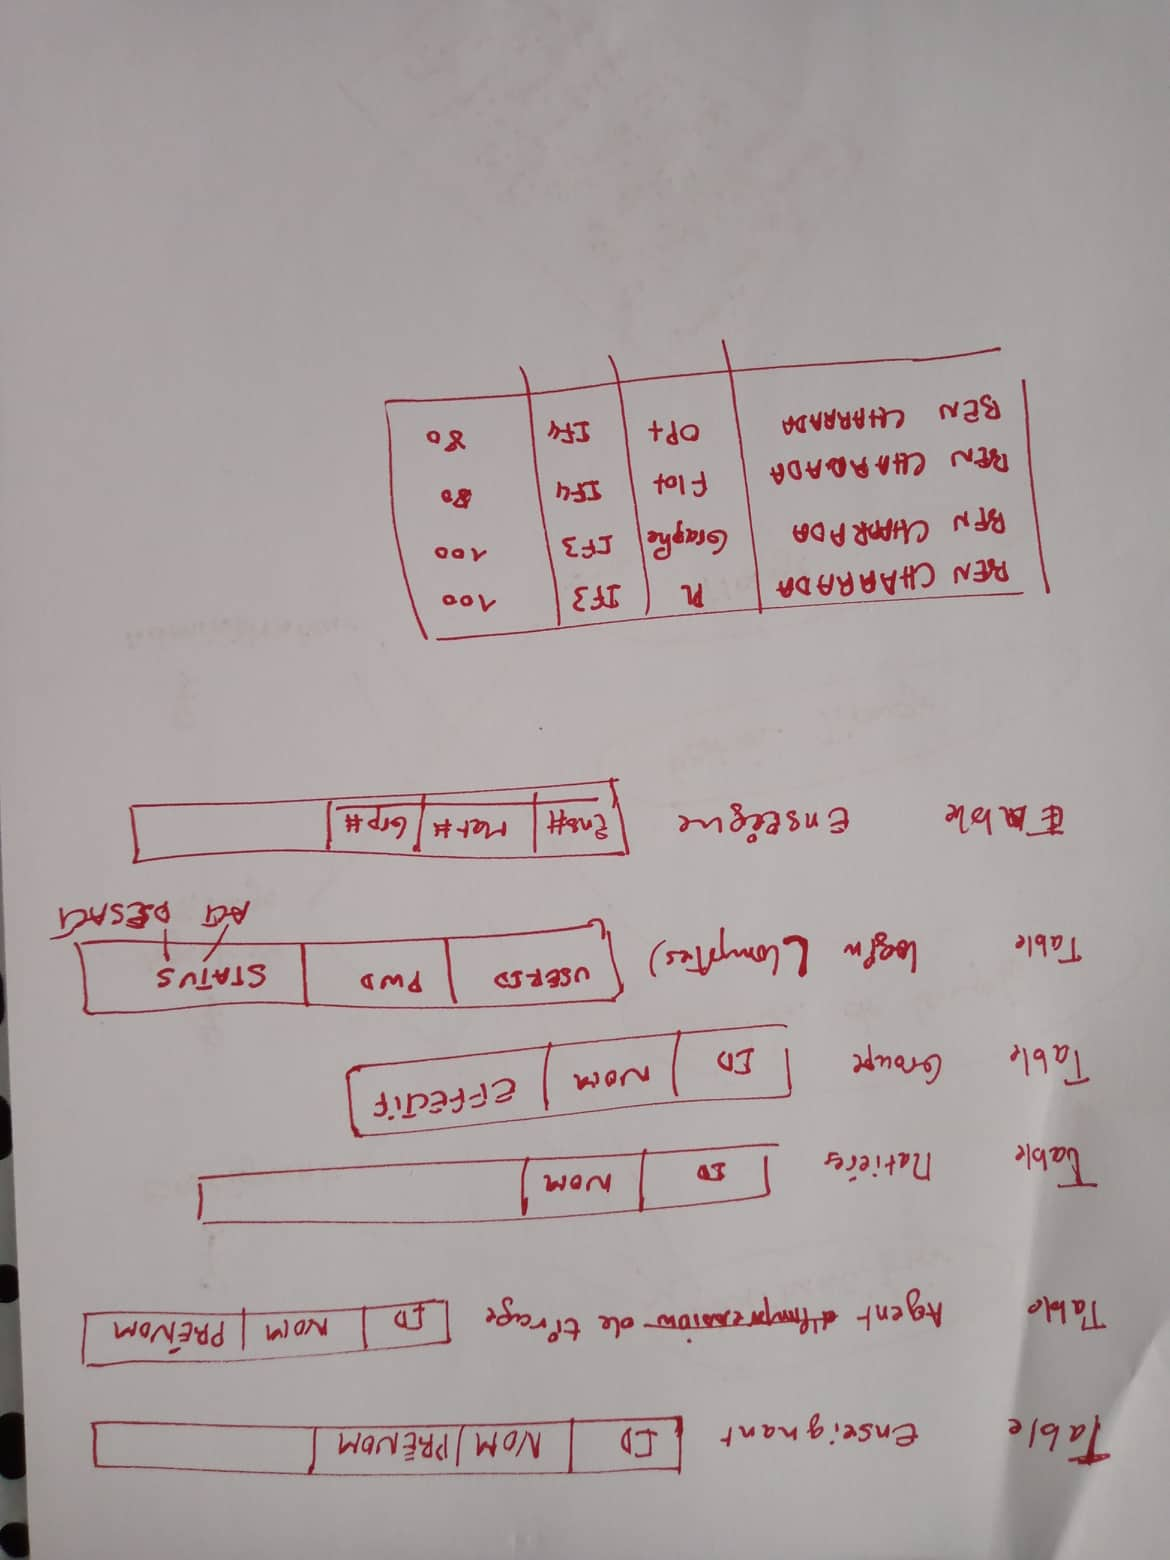 Table Enseignant ID NOM PRÉNOM
Table Agent de tirage ID NOM PRÉNOM
Table Matières ID NOM
Table Groupe ID NOM EFFECTIF
Table login (comptes) USERID PWD STATUS
ACT DESACT
Table Enseigne Ens# Mat# Grp#
BEN CHARRADA PL IF3 100
BEN CHARRADA Graphe IF3 100
BEN CHARRADA Flot IF4 80
BEN CHARRADA OPt IF4 80